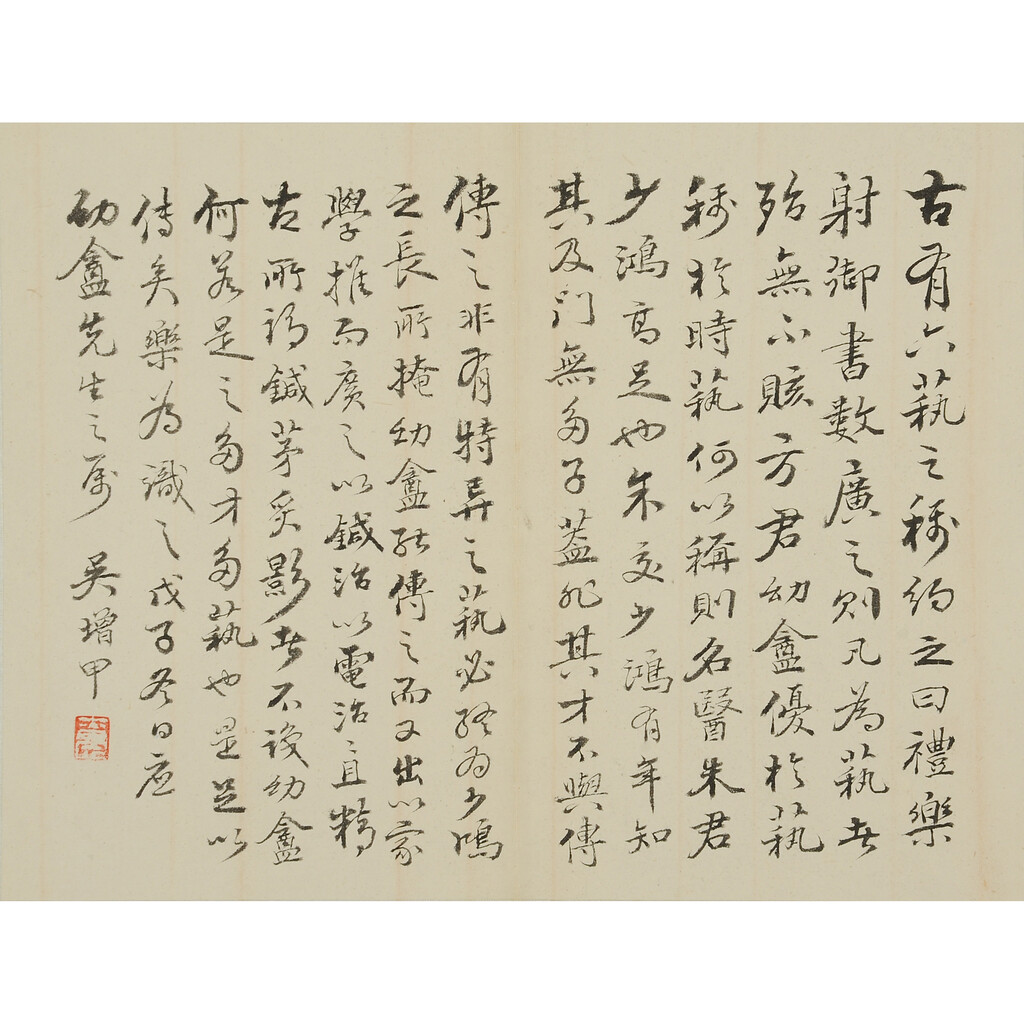 古有六藝之稱約之曰禮樂
射御書數廣之則凡為藝者
殆無不賅方君幼盦優於藝
稱於時藝何以稱則名醫朱君
少鴻高足也余交少鴻有年知
其及門無多子蓋非其才不與傳
傳之非有特異之藝必終為少鴻
之長所掩幼盦能傳之而又出以家
學推而廣之以鍼治以電治〻且精
古所謂鍼茅影者不幼盦
何若是之多才多藝也是足以
傳矣樂為識之戊子冬日應
幼盦先生之属 吳增甲